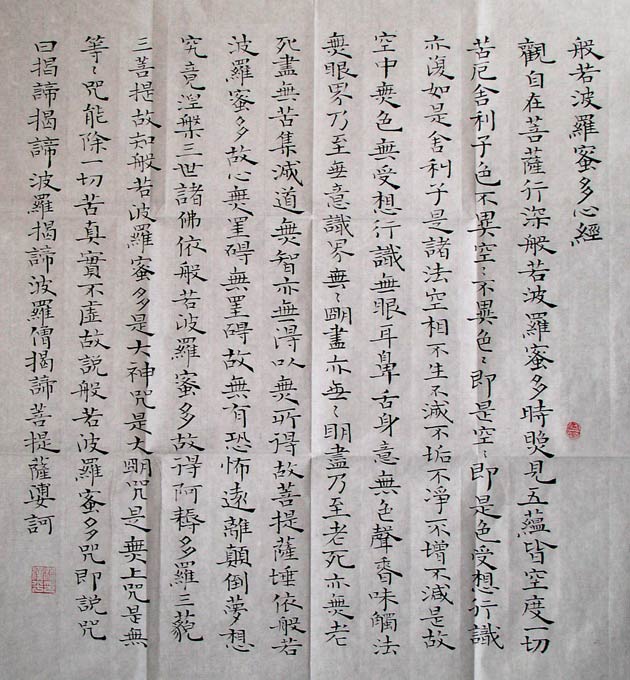 般若波羅蜜多心經
觀自在菩薩行深般若波羅蜜多時照見五蘊皆空度一切
苦厄舍利子色不異空〻不異色〻即是空〻即是色受想行識
亦復如是舍利子是諸法空相不生不滅不垢不淨不增不減是故
空中無色無受想行識無眼耳鼻舌身意無色聲香味觸法
無眼界乃至無意識界無〻明盡亦無〻明盡乃至老死亦無老
死盡無苦集滅道無智亦無得以無所得故菩提薩埵依般若
波羅蜜多故心無罣礙無罣礙故無有恐怖遠離顛倒夢想
究竟涅槃三世諸佛依般若波羅蜜多故得阿耨多羅三藐
三菩提故知般若波羅蜜多是大神咒是大明咒是無上咒是無
等〻咒能除一切苦真實不虛故說般若波羅蜜多咒即說咒
曰揭諦揭諦波羅揭諦波羅僧揭諦菩提薩婆訶